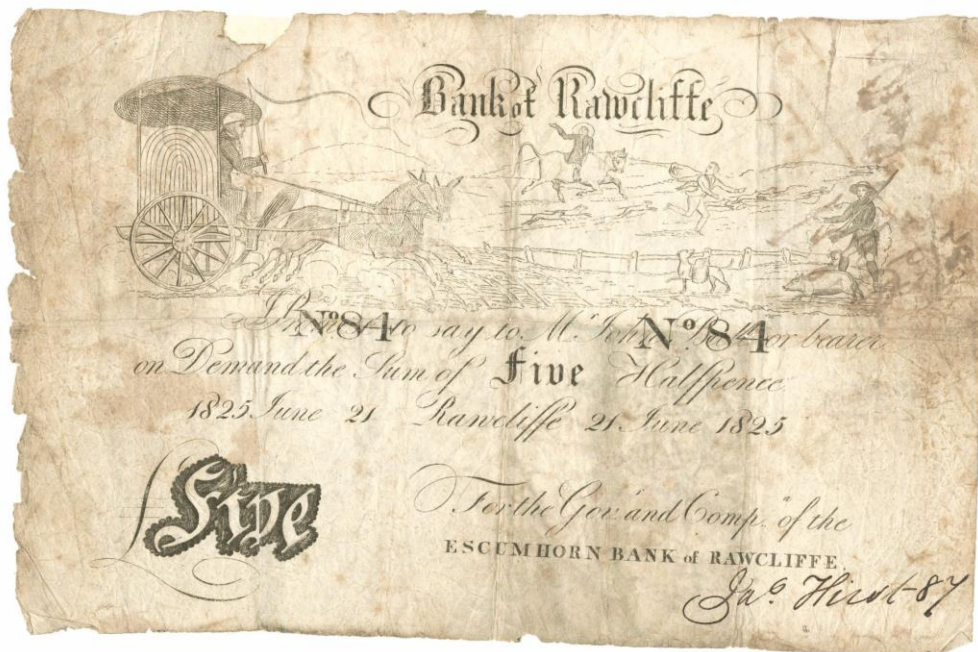 Bank of Rawcliffe
I to say to Mr. John or bearer
No. 84 No. 84
on Demand the Sum of Five Halfpence
1825 June 21 Rawcliffe 21 June 1825
Five
For the Gov. and Comp. of the
ESCUMHORN BANK of RAWCLIFFE
Jas. Hirst-87